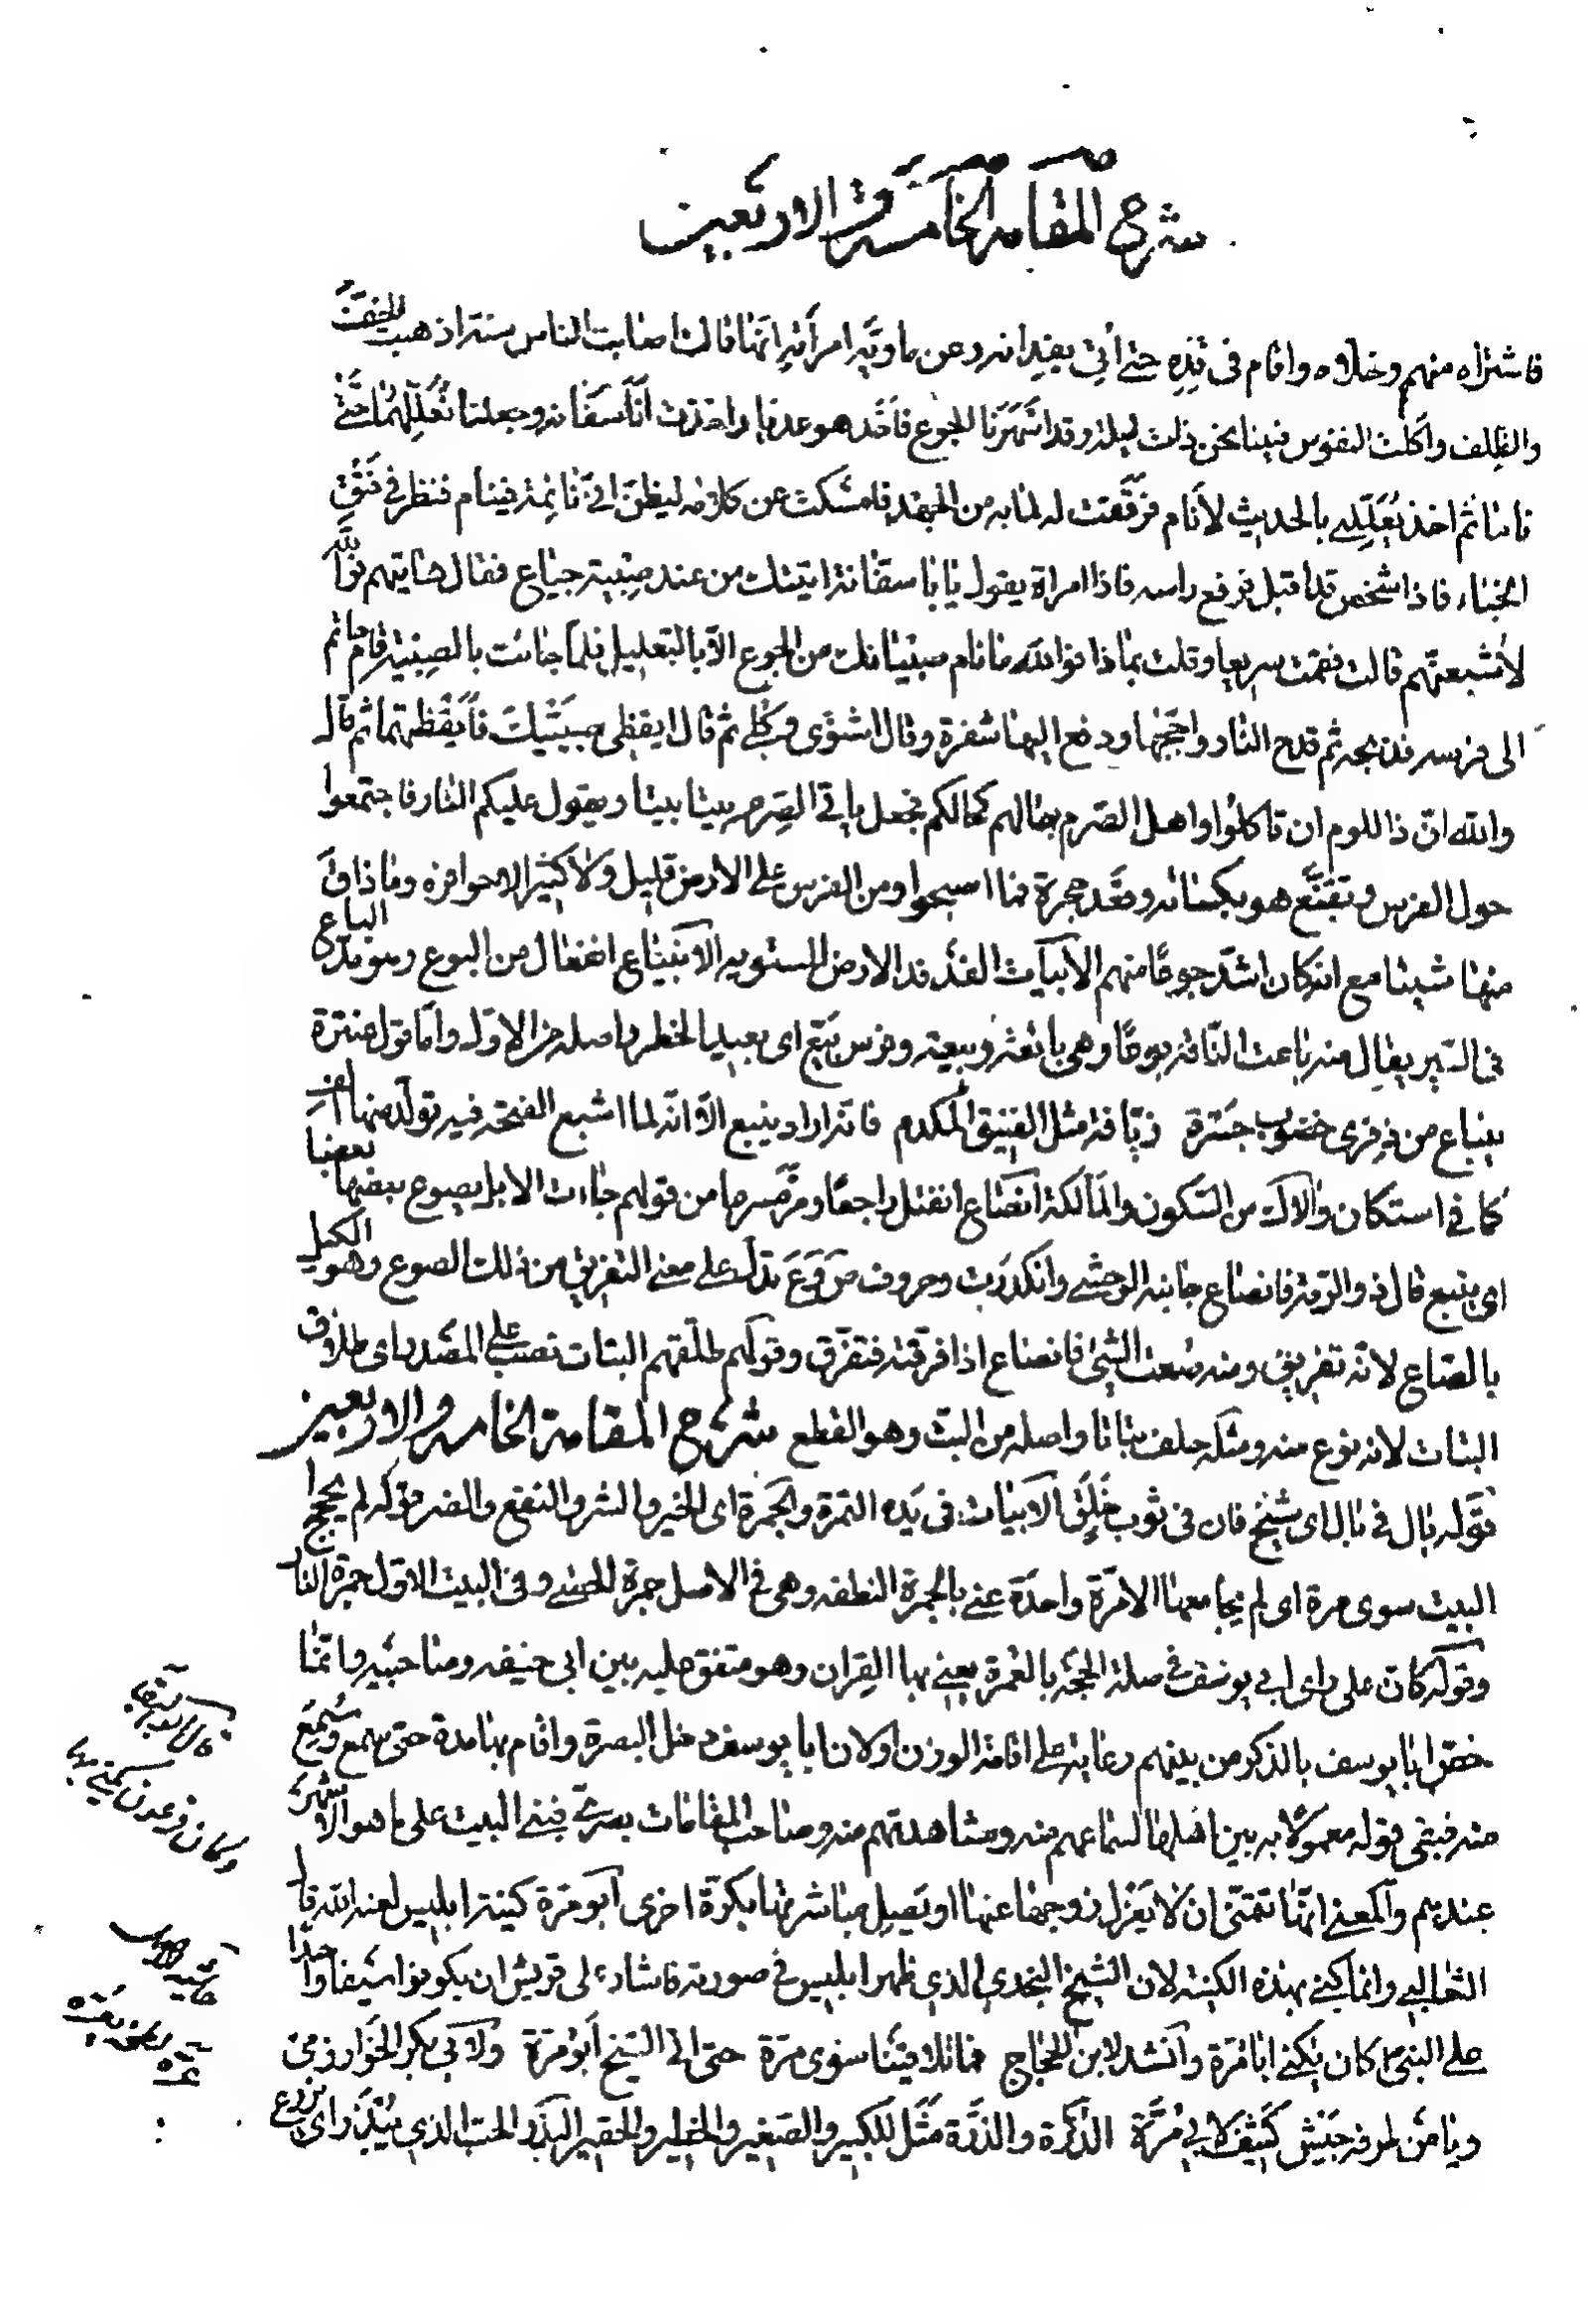 شرح المقامة الخامسة والاربعين
فاشتراه منهم وخلاه واقام في قِدّه حتى أُتي بفدائه وعن ماويّه امرأته انّها قالت اصابت الناس سنة اذهبت الخف
والظلف واكلت النفوس فبينا نحن ذات ليلة وقد اسهَرَنا الجوع فاخذ هو عديا واخذت انا سفّانه وجعلنا نعلّلهما حتى
ناما ثم اخذ يعلّلني بالحديث لأنام فرقّقت له لما به من الجهد فامسكت عن كلامه ليظن اني نائمة فينام فنظر في فتق
الخباء فاذا شخص قد اقبل فرفع راسه فاذا امراة يقول يا ابا سفّانة اتيتك من عند صِبية جياع فقال هاتيهم فوالله
لأشبعنّهم قالت فقمت سريعا وقلت بماذا فوالله ما نام صبيانك من الجوع الا بالتعليل فلما جاءت بالصبية قام حاتم
الى فرسه فذبحه ثم قدح النار واججها ودفع اليها شفرة وقال اشوى وكلي ثم قال ايقظي صبيتك فأيقظتهما ثم قال
والله انّ ذا اللوم ان تاكلوا واهل الصرم حالهم كحالكم فجعل ياتي الصِرم بيتا بيتا ويقول عليكم النار فاجتمعوا
حول الفرس وتقنّع هو بكسائه وقعد حجرة فما اصبحوا ومن الفرس على الارض قليل ولا كثير الا حوافره وما ذاق
منها شيئا مع انه كان اشدّ جوعًا منهم الابيات الفدفد الارض المستويه الانبياع انفعال من البوع وهو مدّ الباع
في السير يقال منه باعت الناقة بوعًا وهي بائعة وبيعة وفرس بيّع اى بعيد الخطو واصله من الاول واما قول عنترة
ينباع من ذِفرى غضوب جَسرة زيّافة مثل الفنيق المكدم فانه اراد ينبع الا انه لما اشبع الفتحة فيه تولد منها الف
كما في استكان والاك من السكون والمألكة انصاع انفتل راجعًا ومرّ مسرعا من قولهم جاءت الابل يصوع بعضها بعضا
اى يتبع قال ذو الرمة فانصاع جانبه الوحشي وانكدرت وحروف صَ وَ عَ تدل على معنى التفريق من ذلك الصوع وهو الكيل
بالصاع لانه تفريق ومنه صُعت الشئ فانصاع اذا فرقته فتفرق وقولهم طلقهم البتات نصب على المصدر اى طلاق
البتات لانه نوع منه ومثله حلف بتاتا واصله من البتّ وهو القطع شرح المقامة الخامسة والاربعين
قوله بال في بال اى شيخ فان في ثوب خَلِق الابيات في يده التمرة والجمرة اى الخير والشر والنفع والضر قوله لم يحجج
البيت سوى مرة اى لم يجامعها الا مرّة واحدة عني بالجمرة النطفه وهى في الاصل جمرة للحصى وفى البيت الاول جمرة النار
وقوله كان على راى ابى يوسف في صلة الحجّة بالعُمرة يعنى بها القِران وهو متفق عليه بين ابى حنيفه وصاحبيه وانما
خصّ ابا يوسف بالذكر من بينهم رعاية على اقامة الوزن اولان ابا يوسف دخل البصرة واقام بها مدة حتى سمع وسُمِعَ
منه فبقى قوله معمولا به بين اهلها لسماعهم منه ومشاهدتهم منه وصاحب المقامات بصرى فبنى البيت على ما هو الاشهر
عندهم والمعنى انها تمتنّى ان لا يعزل زوجها عنها او يصِل مباشرتها بكرّة اخرى ابو مرّة كنية ابليس لعنه الله قال
الثعالبي وانما كنى بهذه الكنية لان الشيخ النجدى الذى ظهر ابليس في صورته فاشار على قريش ان يكونوا سيفا واحدًا
على النبى كان يكنى ابا مُرّة وانشد لابن الحجاج فما تلاقينا سوى مرة حتى اتى الشيخ أبو مُرّة ولابى بكر الخوارزمى
ويا من لمرفه جيش كثيف لابى مُرّة الذّكرة والذرّة مثل للكبير والصغير والخطير والحقير البَذر الحَبّ الذى يُبْذَر اى يزرع